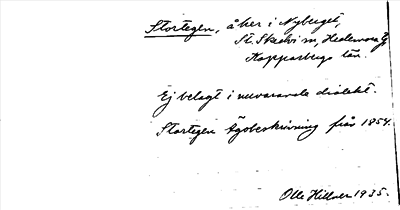 Stortegen, åker i Nyberget,
St. Skedvi sn, Hedemora
Kopparbergs län.
Ej belagt i nuvarande dialekt.
Stortegen Ägobeskrivning från 1854.
Olle Hillver 1935.